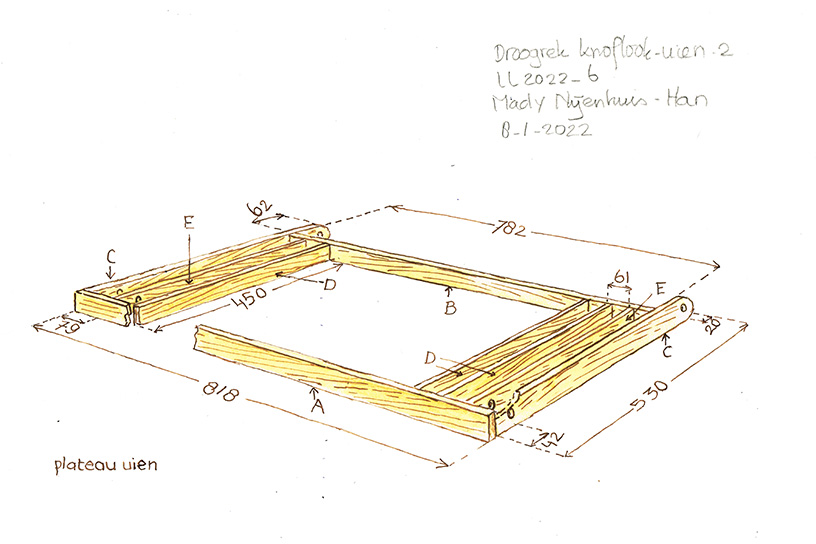 Droogrek knoflook-uien-2
LL2022-6
Mady Nijenhuis-Han
8-1-2022
62
782
E
C
61
E
D
450
B
79
20
C
D
818
A
530
42
plateau uien